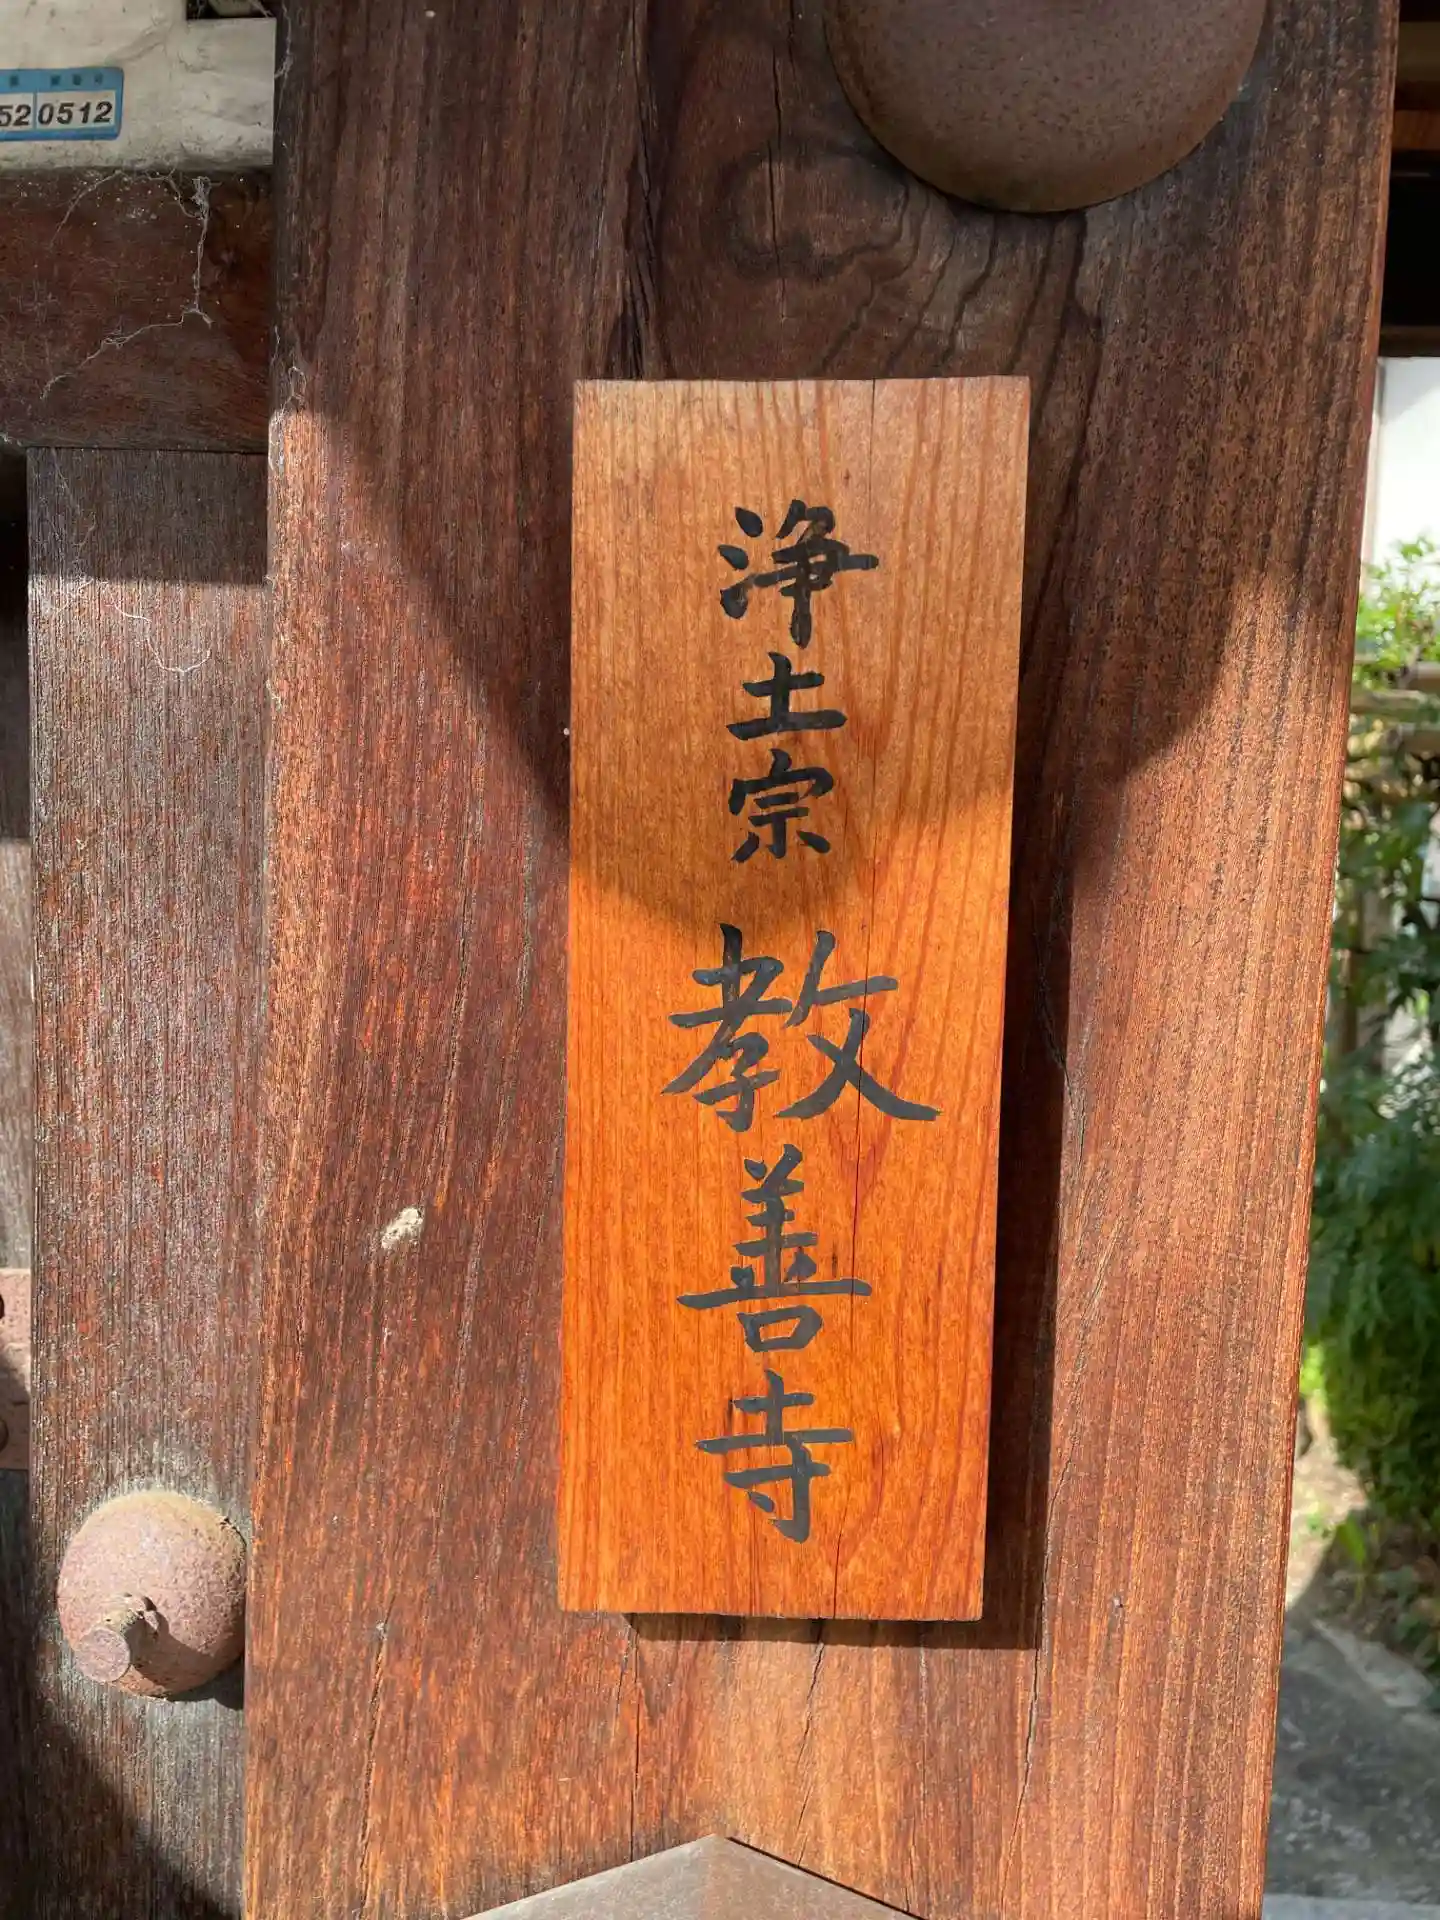 520512
浄土宗 教善寺